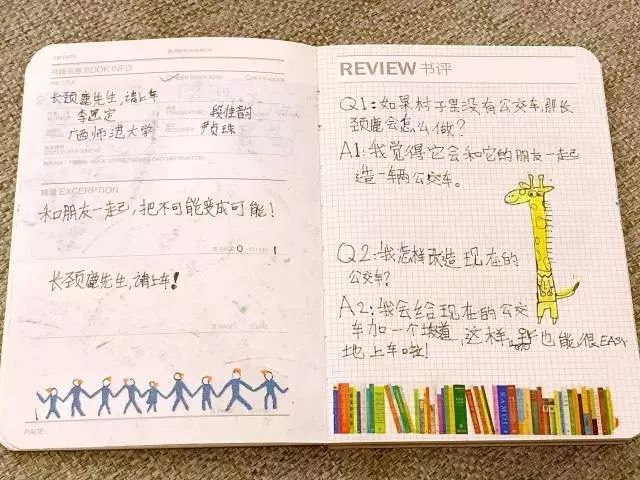 书籍信息 BOOK INFO
长颈鹿先生,请上车
李思定
段佳韵
广西师范大学
尹贞珠
摘录 EXCERPTION
和朋友一起,把不可能变成可能!
页 PAGE 0 行 LINE 1
长颈鹿先生,请上车!
页 PAGE 行 LINE
PAGE:
REVIEW 书评
Q1:如果村子里没有公交车,那长
颈鹿会怎么做?
A1:我觉得它会和它的朋友一起
造一辆公交车。
Q2:我怎样改造现在的
公交车?
A2:我会给现在的公交
车加一个坡道,这样 也能很EASY
地上车啦!